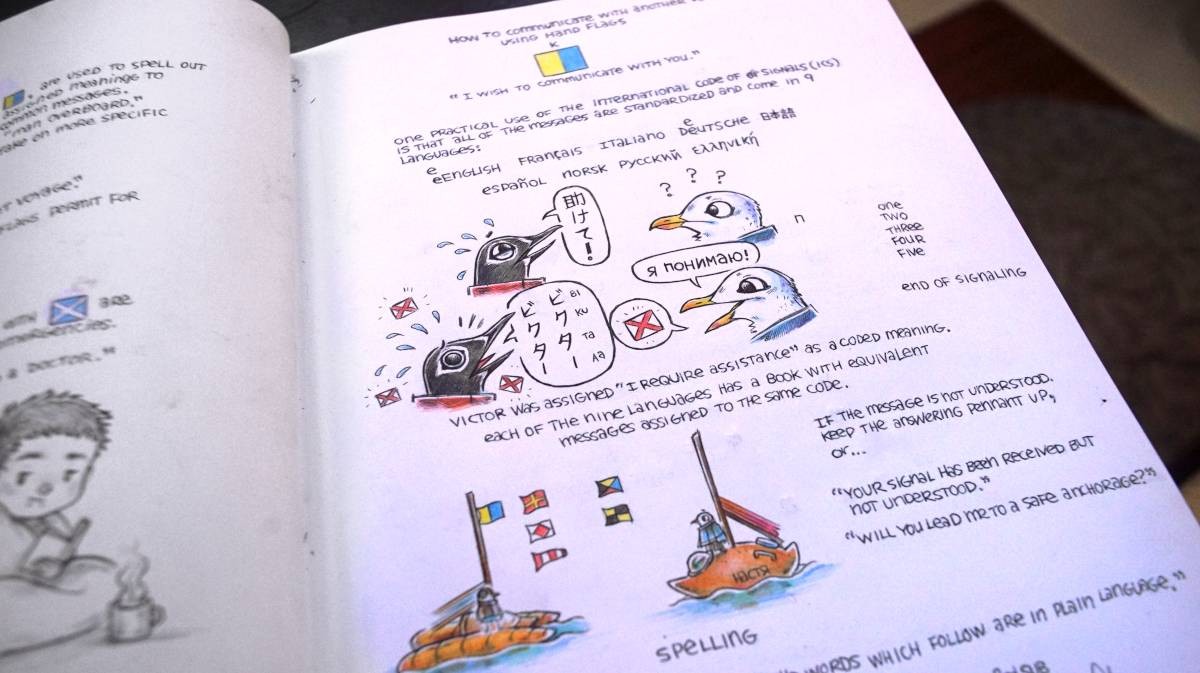 , are used to spell out
assigned meanings to
common messages.
"man overboard."
on more specific
voyage."
flags permit for
with are
emergencies.
a doctor."
How to communicate with another
using hand flags
K
"I wish to communicate with you."
one practical use of the International Code of Signals (ICS)
is that all of the messages are standardized and come in 9
languages:
e e
eEnglish Français Italiano Deutsche 日本語
español norsk русский Ελληνική
? ? ?
助けて!
n
one
two
three
four
five
я понимаю!
ビクター
ビクター
BI
KU
TA
Aa
end of signaling
Victor was assigned "I require assistance" as a coded meaning.
each of the nine languages has a book with equivalent
messages assigned to the same code.
If the message is not understood,
keep the answering pennant up,
or...
"Your signal has been received but
not understood."
"Will you lead me to a safe anchorage?"
Настя
spelling
words which follow are in plain language."